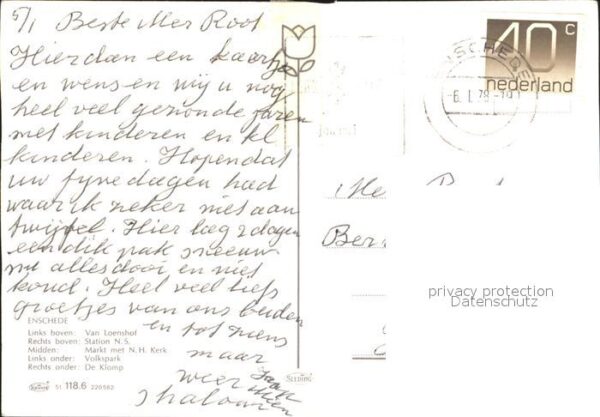 5/1 Beste Mer Root
Hierdan een kaartje
en wens en wy u nog
heel veel gezonde jaren
met kinderen en kl
kinderen. Hopendat
uw fyne dagen had
waar ik zeker niet aan
twijfel. Hier lag 2 dagen
een dik pak sneeuw
nu alles dooi en niet
koud. Heel veel liefs
groetjes van ons beiden
en tot ziens
maar
weer
ENSCHEDE
Links boven: Van Loenshof
Rechts boven: Station N.S.
Midden: Markt met N.H. Kerk
Links onder: Volkspark
Rechts onder: De Klomp
51 118.6 220562
40 c
nederland
6. 1. 78 - 19
Ber
privacy protection
Datenschutz